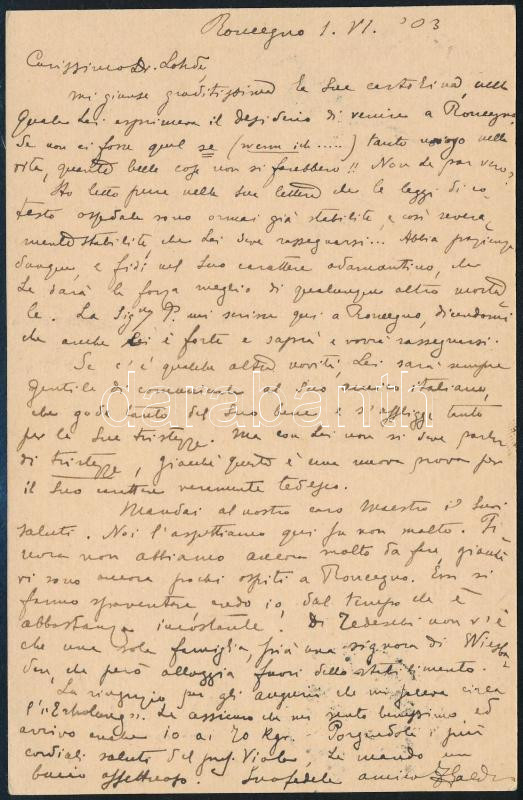 Roncegno 1. VI. '03
Carissimo Dr.
mi giunse graditissima la Sua cartolina, nella
quale Lei esprimeva il desiderio di venire a Roncegno.
Se non ci fosse quel se (wenn ich.....) tanto nella
vita, quante belle cose non si farebbero!! Non Le par vero?
Ho letto pure nella Sua lettera che le leggi di co-
testo ospedale sono ormai già stabilite, e così severa-
mente stabilite, che Lei deve rassegnarsi... Abbia pazienza
dunque, e fidi nel Suo carattere adamantino, che
Le darà la forza meglio di qualunque altro morta-
le. La Sig.na P. mi scrisse qui a Roncegno, dicendomi
che anche Lei è forte e saprà e vorrà rassegnarsi.
Se c'è qualche altra novità, Lei sarà sempre
gentile di comunicarla al Suo amico italiano,
che gode tanto del Suo bene e s'affligge tanto
per le Sue tristezze. Ma con Lei non si deve parlar
di tristezze, giacchè questo è una nuova prova per
il Suo carattere veramente tedesco.
Mandai al nostro caro Maestro i Suoi
saluti. Noi l'aspettiamo qui fra non molto. Fi-
nora non abbiamo ancora molto da fare, giacchè
vi sono ancora pochi ospiti a Roncegno. Essi si
fanno spaventare credo io, dal tempo che è
abbastanza incostante. Di Tedeschi non v'è
che una sola famiglia, più una signora di Wiesba-
den, che però alloggia fuori dello stabilimento.
La ringrazio per gli auguri che mi faceva circa
l'"Erholung". Le assicuro che mi sento benissimo, ed
arrivo anche io ai 70 Kgr. Porgendole i più
cordiali saluti del prof. Viola, Le mando un
bacio affettuoso. Suo fedele amico
darabanth